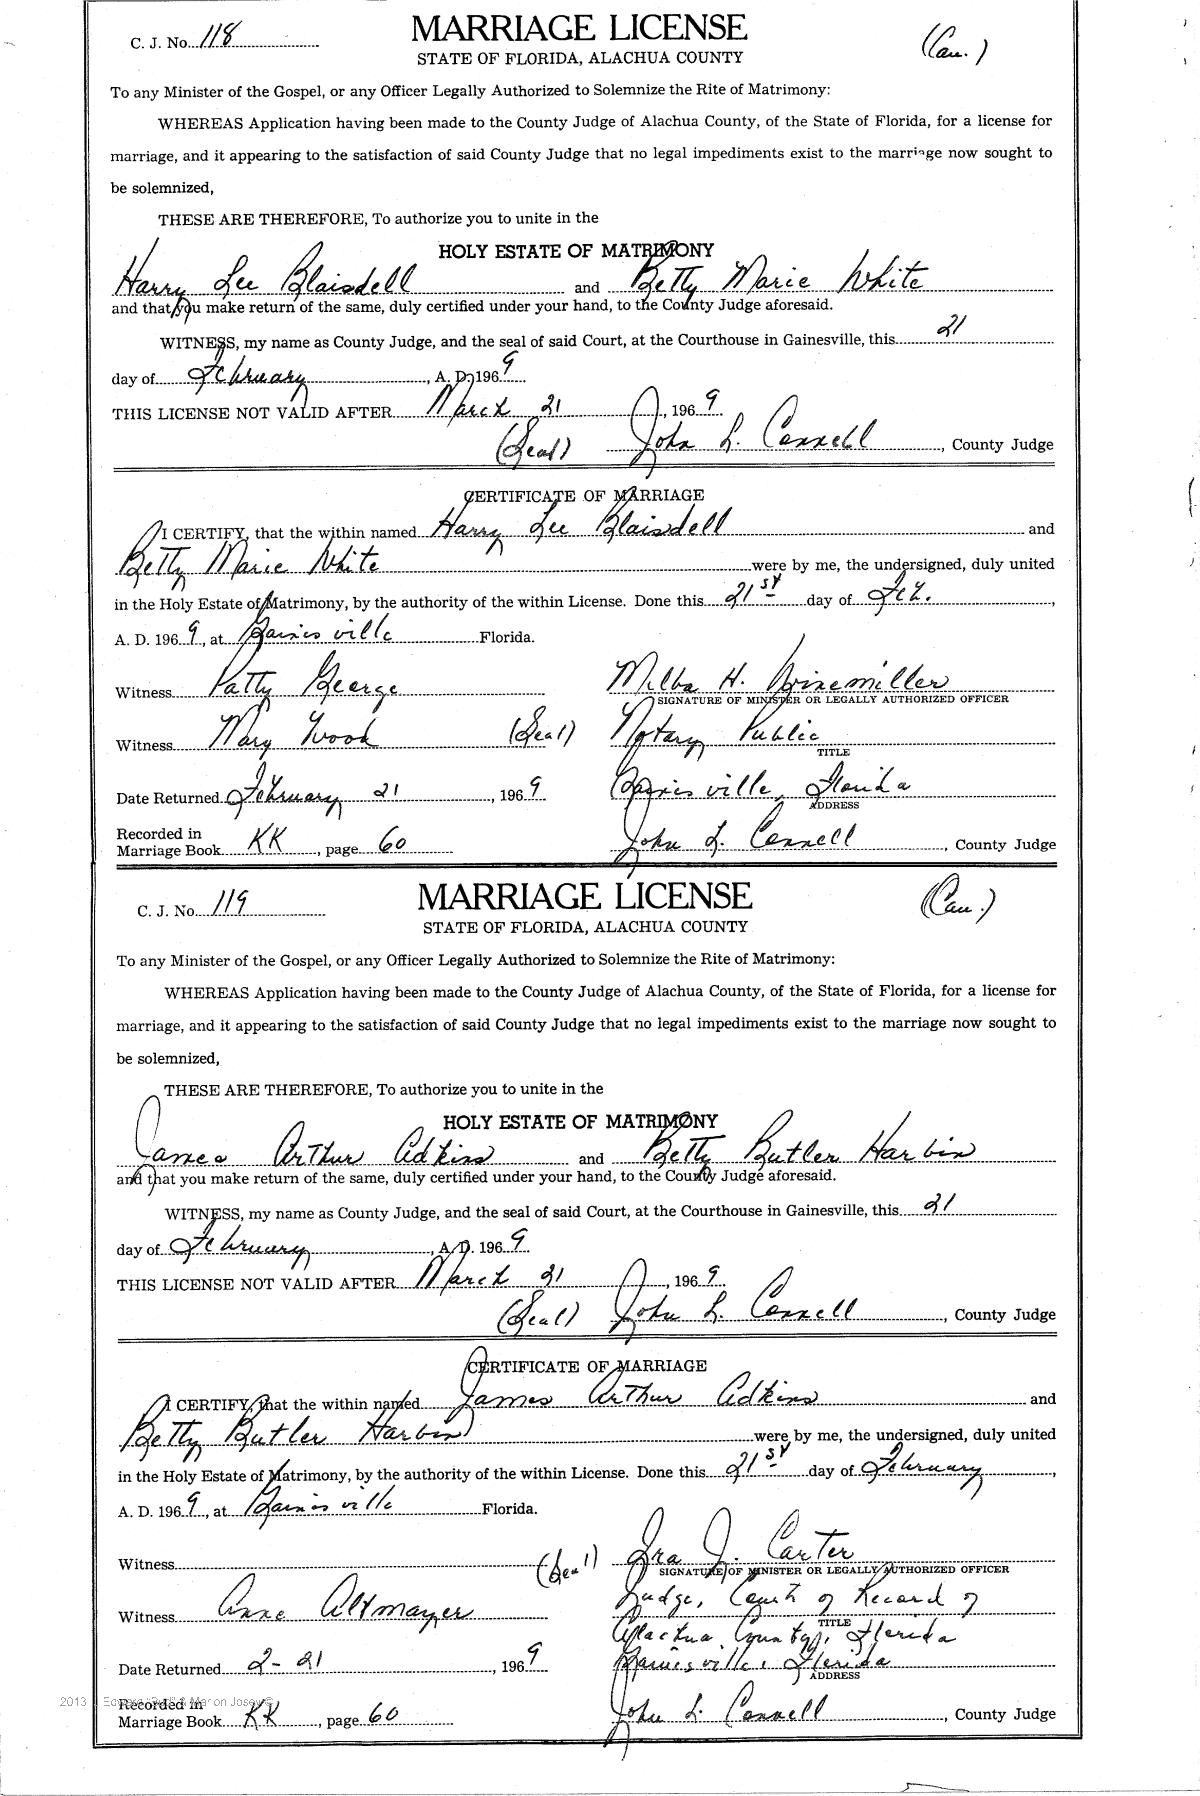 C. J. No. 118
MARRIAGE LICENSE
(Cau.)
STATE OF FLORIDA, ALACHUA COUNTY
To any Minister of the Gospel, or any Officer Legally Authorized to Solemnize the Rite of Matrimony:
WHEREAS Application having been made to the County Judge of Alachua County, of the State of Florida, for a license for
marriage, and it appearing to the satisfaction of said County Judge that no legal impediments exist to the marriage now sought to
be solemnized,
THESE ARE THEREFORE, To authorize you to unite in the
HOLY ESTATE OF MATRIMONY
Harry Lee Blaisdell and Betty Marie White
and that you make return of the same, duly certified under your hand, to the County Judge aforesaid.
WITNESS, my name as County Judge, and the seal of said Court, at the Courthouse in Gainesville, this 21
day of February, A. D. 1969
THIS LICENSE NOT VALID AFTER March 21, 1969
(Seal) John L. Connell, County Judge
CERTIFICATE OF MARRIAGE
I CERTIFY, that the within named Harry Lee Blaisdell and
Betty Marie White were by me, the undersigned, duly united
in the Holy Estate of Matrimony, by the authority of the within License. Done this 21st day of Feb.,
A. D. 1969, at Gainesville Florida.
Witness Patty George Melba H. Winemiller
SIGNATURE OF MINISTER OR LEGALLY AUTHORIZED OFFICER
Witness Mary Wood (Seal) Notary Public
TITLE
Date Returned February 21, 1969 Gainesville, Florida
ADDRESS
Recorded in
Marriage Book KK, page 60 John L. Connell, County Judge
C. J. No. 119
MARRIAGE LICENSE
(Cau.)
STATE OF FLORIDA, ALACHUA COUNTY
To any Minister of the Gospel, or any Officer Legally Authorized to Solemnize the Rite of Matrimony:
WHEREAS Application having been made to the County Judge of Alachua County, of the State of Florida, for a license for
marriage, and it appearing to the satisfaction of said County Judge that no legal impediments exist to the marriage now sought to
be solemnized,
THESE ARE THEREFORE, To authorize you to unite in the
HOLY ESTATE OF MATRIMONY
James Arthur Adkins and Betty Butler Harbin
and that you make return of the same, duly certified under your hand, to the County Judge aforesaid.
WITNESS, my name as County Judge, and the seal of said Court, at the Courthouse in Gainesville, this 21
day of February, A. D. 1969
THIS LICENSE NOT VALID AFTER March 21, 1969
(Seal) John L. Connell, County Judge
CERTIFICATE OF MARRIAGE
I CERTIFY, that the within named James Arthur Adkins and
Betty Butler Harbin were by me, the undersigned, duly united
in the Holy Estate of Matrimony, by the authority of the within License. Done this 21st day of February,
A. D. 1969, at Gainesville Florida.
Witness (Seal) Ira J. Carter
SIGNATURE OF MINISTER OR LEGALLY AUTHORIZED OFFICER
Judge, Court of Record of
Witness Anne Altmayer
TITLE
Alachua County, Florida
Date Returned 2-21, 1969 Gainesville, Florida
ADDRESS
2013
Recorded in
Marriage Book KK, page 60 John L. Connell, County Judge